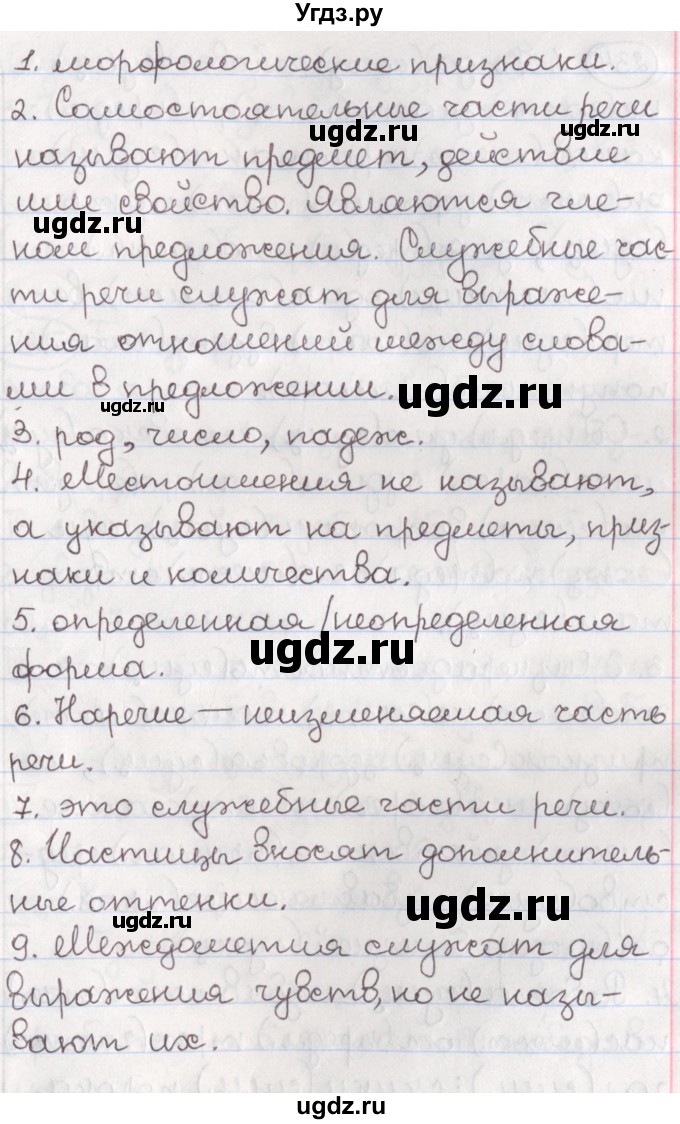 Угдз.ру
1. морфологические признаки.
2. Самостоятельные части речи
ugdz.ru ugdz.ru
называют предмет, действие
или свойство. Являются чле-
ugdz.ru
ном предложения. Служебные час-
ти речи служат для выраже-
ния отношений между слова-
ми в предложении.
ugdz.ru ugdz.ru
3. род, число, падеж.
4. Местоимения не называют,
а указывают на предметы, приз-
наки и количества.
5. определенная/неопределенная
ugdz.ru
форма.
6. Наречие – неизменяемая часть
речи.
7. это служебные части речи.
8. Частицы вносят дополнитель-
ные оттенки.
ugdz.ru ugdz.ru
9. Междометия служат для
выражения чувств, но не назы-
вают их.
ugdz.ru